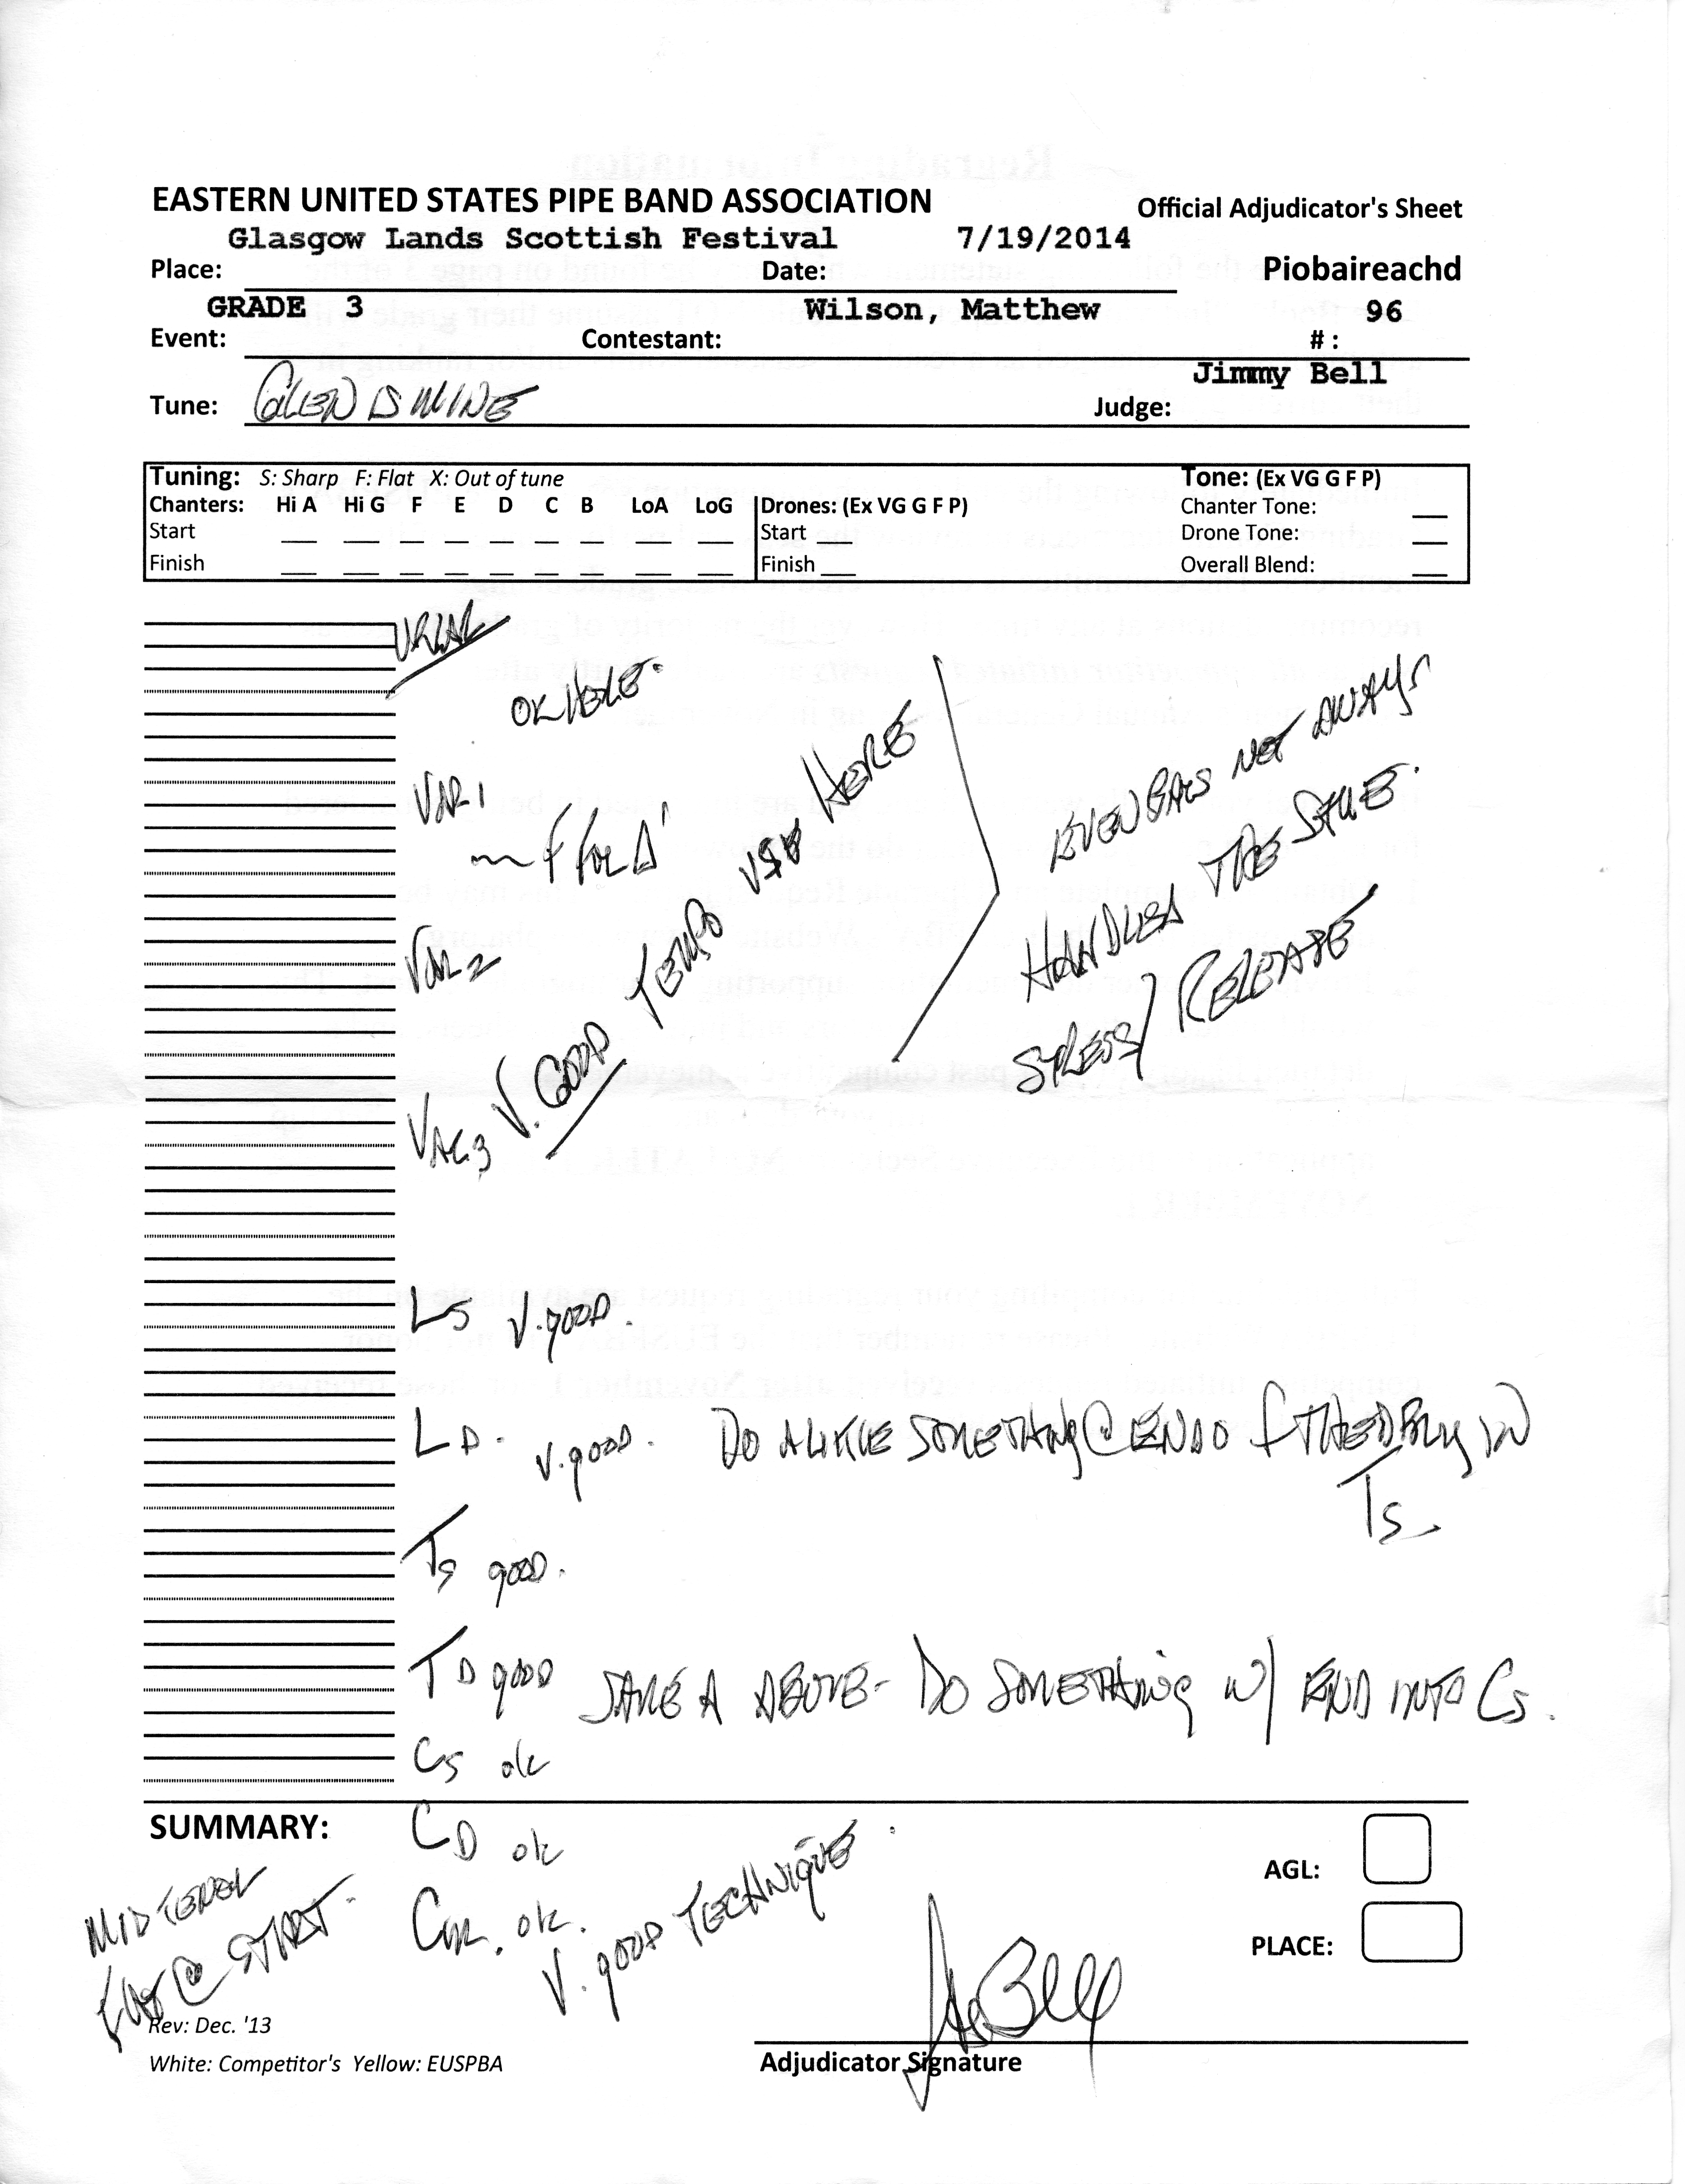 EASTERN UNITED STATES PIPE BAND ASSOCIATION
Official Adjudicator's Sheet
Glasgow Lands Scottish Festival 7/19/2014
Place: Date: Piobaireachd
GRADE 3 Wilson, Matthew 96
Event: Contestant: # :
Jimmy Bell
Tune: GLEN IS MINE Judge:
Tuning: S: Sharp F: Flat X: Out of tune Tone: (Ex VG G F P)
Chanters: Hi A Hi G F E D C B LoA LoG Drones: (Ex VG G F P) Chanter Tone:
Start Start Drone Tone:
Finish Finish Overall Blend:
URLAR
OK HERE.
VAR 1
f for A'
VAR 2
VAR 3 V. GOOD TEMPO HERE
EVEN BARS NOT AWAYS
HANDLED THE SAME.
STRESS/ RELEASE
LS V. GOOD.
LD. V. GOOD. DO A LITTLE SOMETHING @ END IN
TS
TS GOOD.
TD GOOD SAME A ABOVE - DO SOMETHING W/ END INTO CS.
CS ok
SUMMARY: CD ok
CM. ok.
V. GOOD TECHNIQUE.
MID TENOR
FLAT @ START.
AGL:
PLACE:
Rev: Dec. '13
White: Competitor's Yellow: EUSPBA
Adjudicator Signature